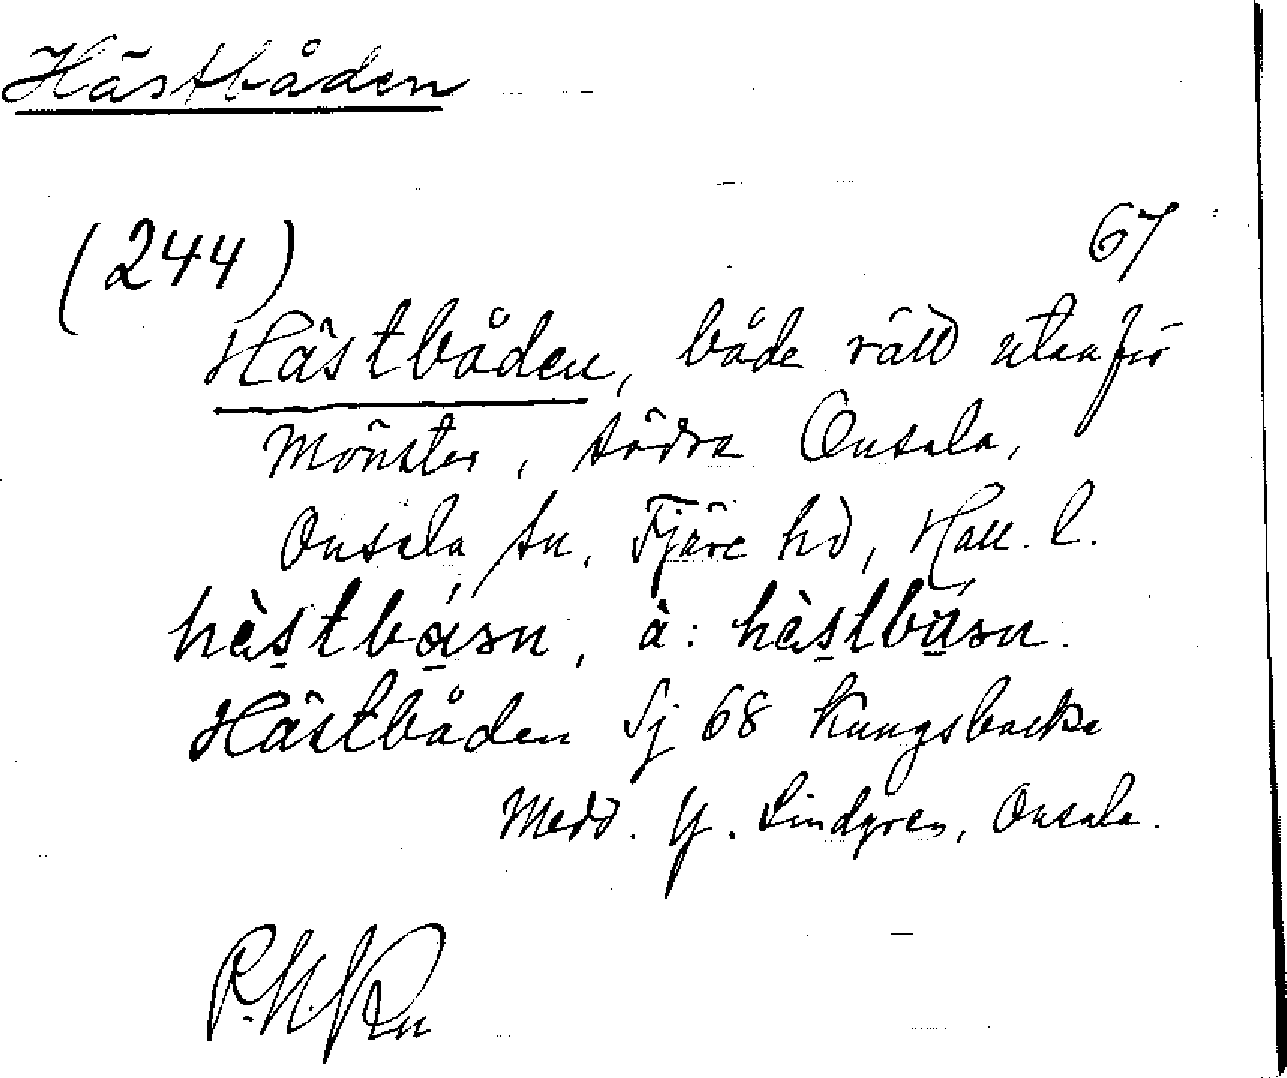 Hästbåden
(244) 67
Hästbåden, både rätt utanför
Mönster, södra Onsala,
Onsala sn, Fjäre hd, Hall. l.
hàstbásn, à: hàstbúsn.
Hästbåden Sj 68 Kungsbacka
Medd. Y. Lindgren, Onsala.